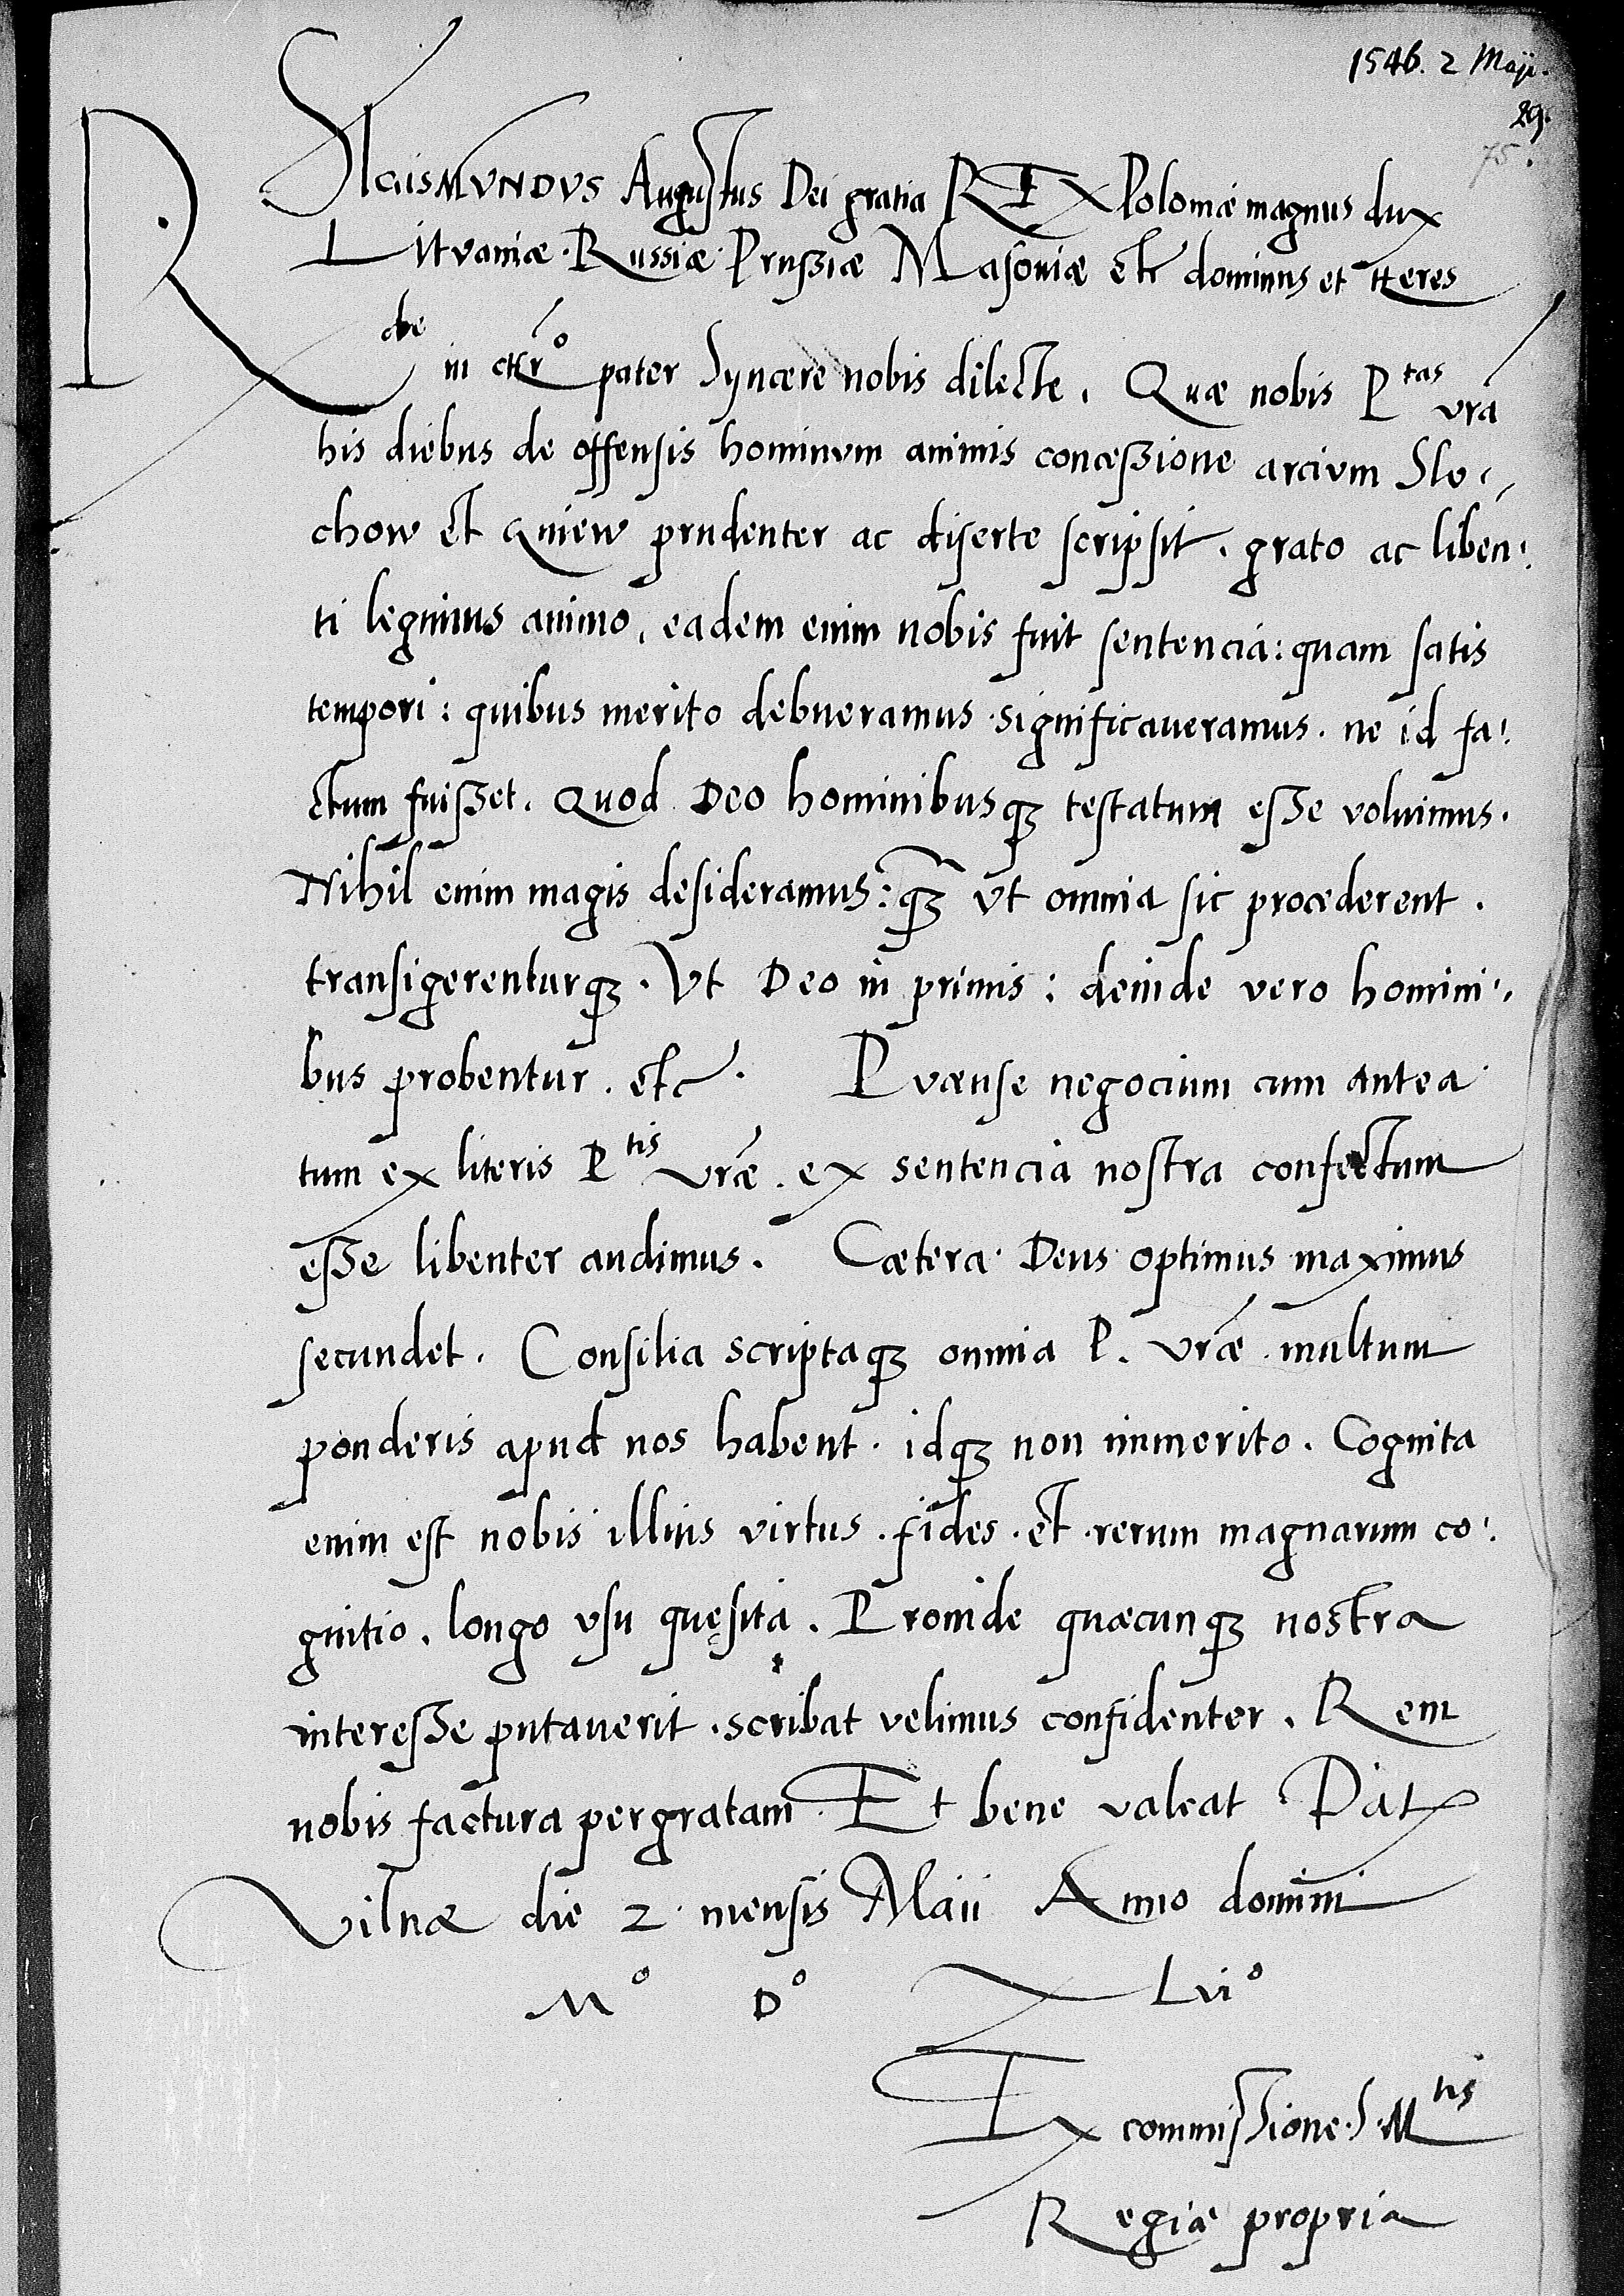 1546. 2 Maji.
29.
75.
SIGISMVNDVS Augustus Dei gratia REX Poloniæ magnus dux
Litvaniæ. Russiæ Prussiæ Masoviæ etc dominus et Heres
Rde in chro pater syncere nobis dilecte. Quæ nobis Ptas vrã
his diebus de offensis hominvm animis concessione arcivm Slo-
chow et Gniew prudenter ac diserte scripsit. grato ac liben-
ti legimus animo, eadem enim nobis fuit sentencia: quam satis
tempori: quibus merito debueramus significaueramus. ne id fa-
ctum fuisset. Quod Deo hominibusq; testatum esse volumus.
Nihil enim magis desideramus: q̃; vt omnia sic procederent.
transigerenturq;. Vt Deo in primis: deinde vero homini-
bus probentur. etc. Pvcense negocium cum antea
tum ex literis Ptis vræ. ex sentencia nostra confectum
esse libenter audimus. Cætera Deus optimus maximus
secundet. Consilia scriptaq; omnia P. vræ multum
ponderis apud nos habent. idq; non immerito. Cognita
enim est nobis illius virtus. fides. et rerum magnarum co-
gnitio. longo vsu quęsita. Proinde quæcunq; nostra
interesse putauerit. scribat velimus confidenter. Rem
nobis factura pergratam. Et bene valeat Dat
Vilnæ die 2 mensis Maii Anno domini
Mo Do XLvio
Ex commissione S. Mtis
Regiæ propria